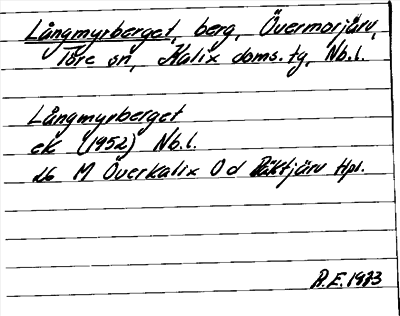 Långmyrberget, berg, Övermorjärv,
Töre sn, Kalix doms. tg, Nb.l.
Långmyrberget
ek (1952) Nb.l.
26 M Överkalix O d Räktjärv Hpl.
R.E. 1983